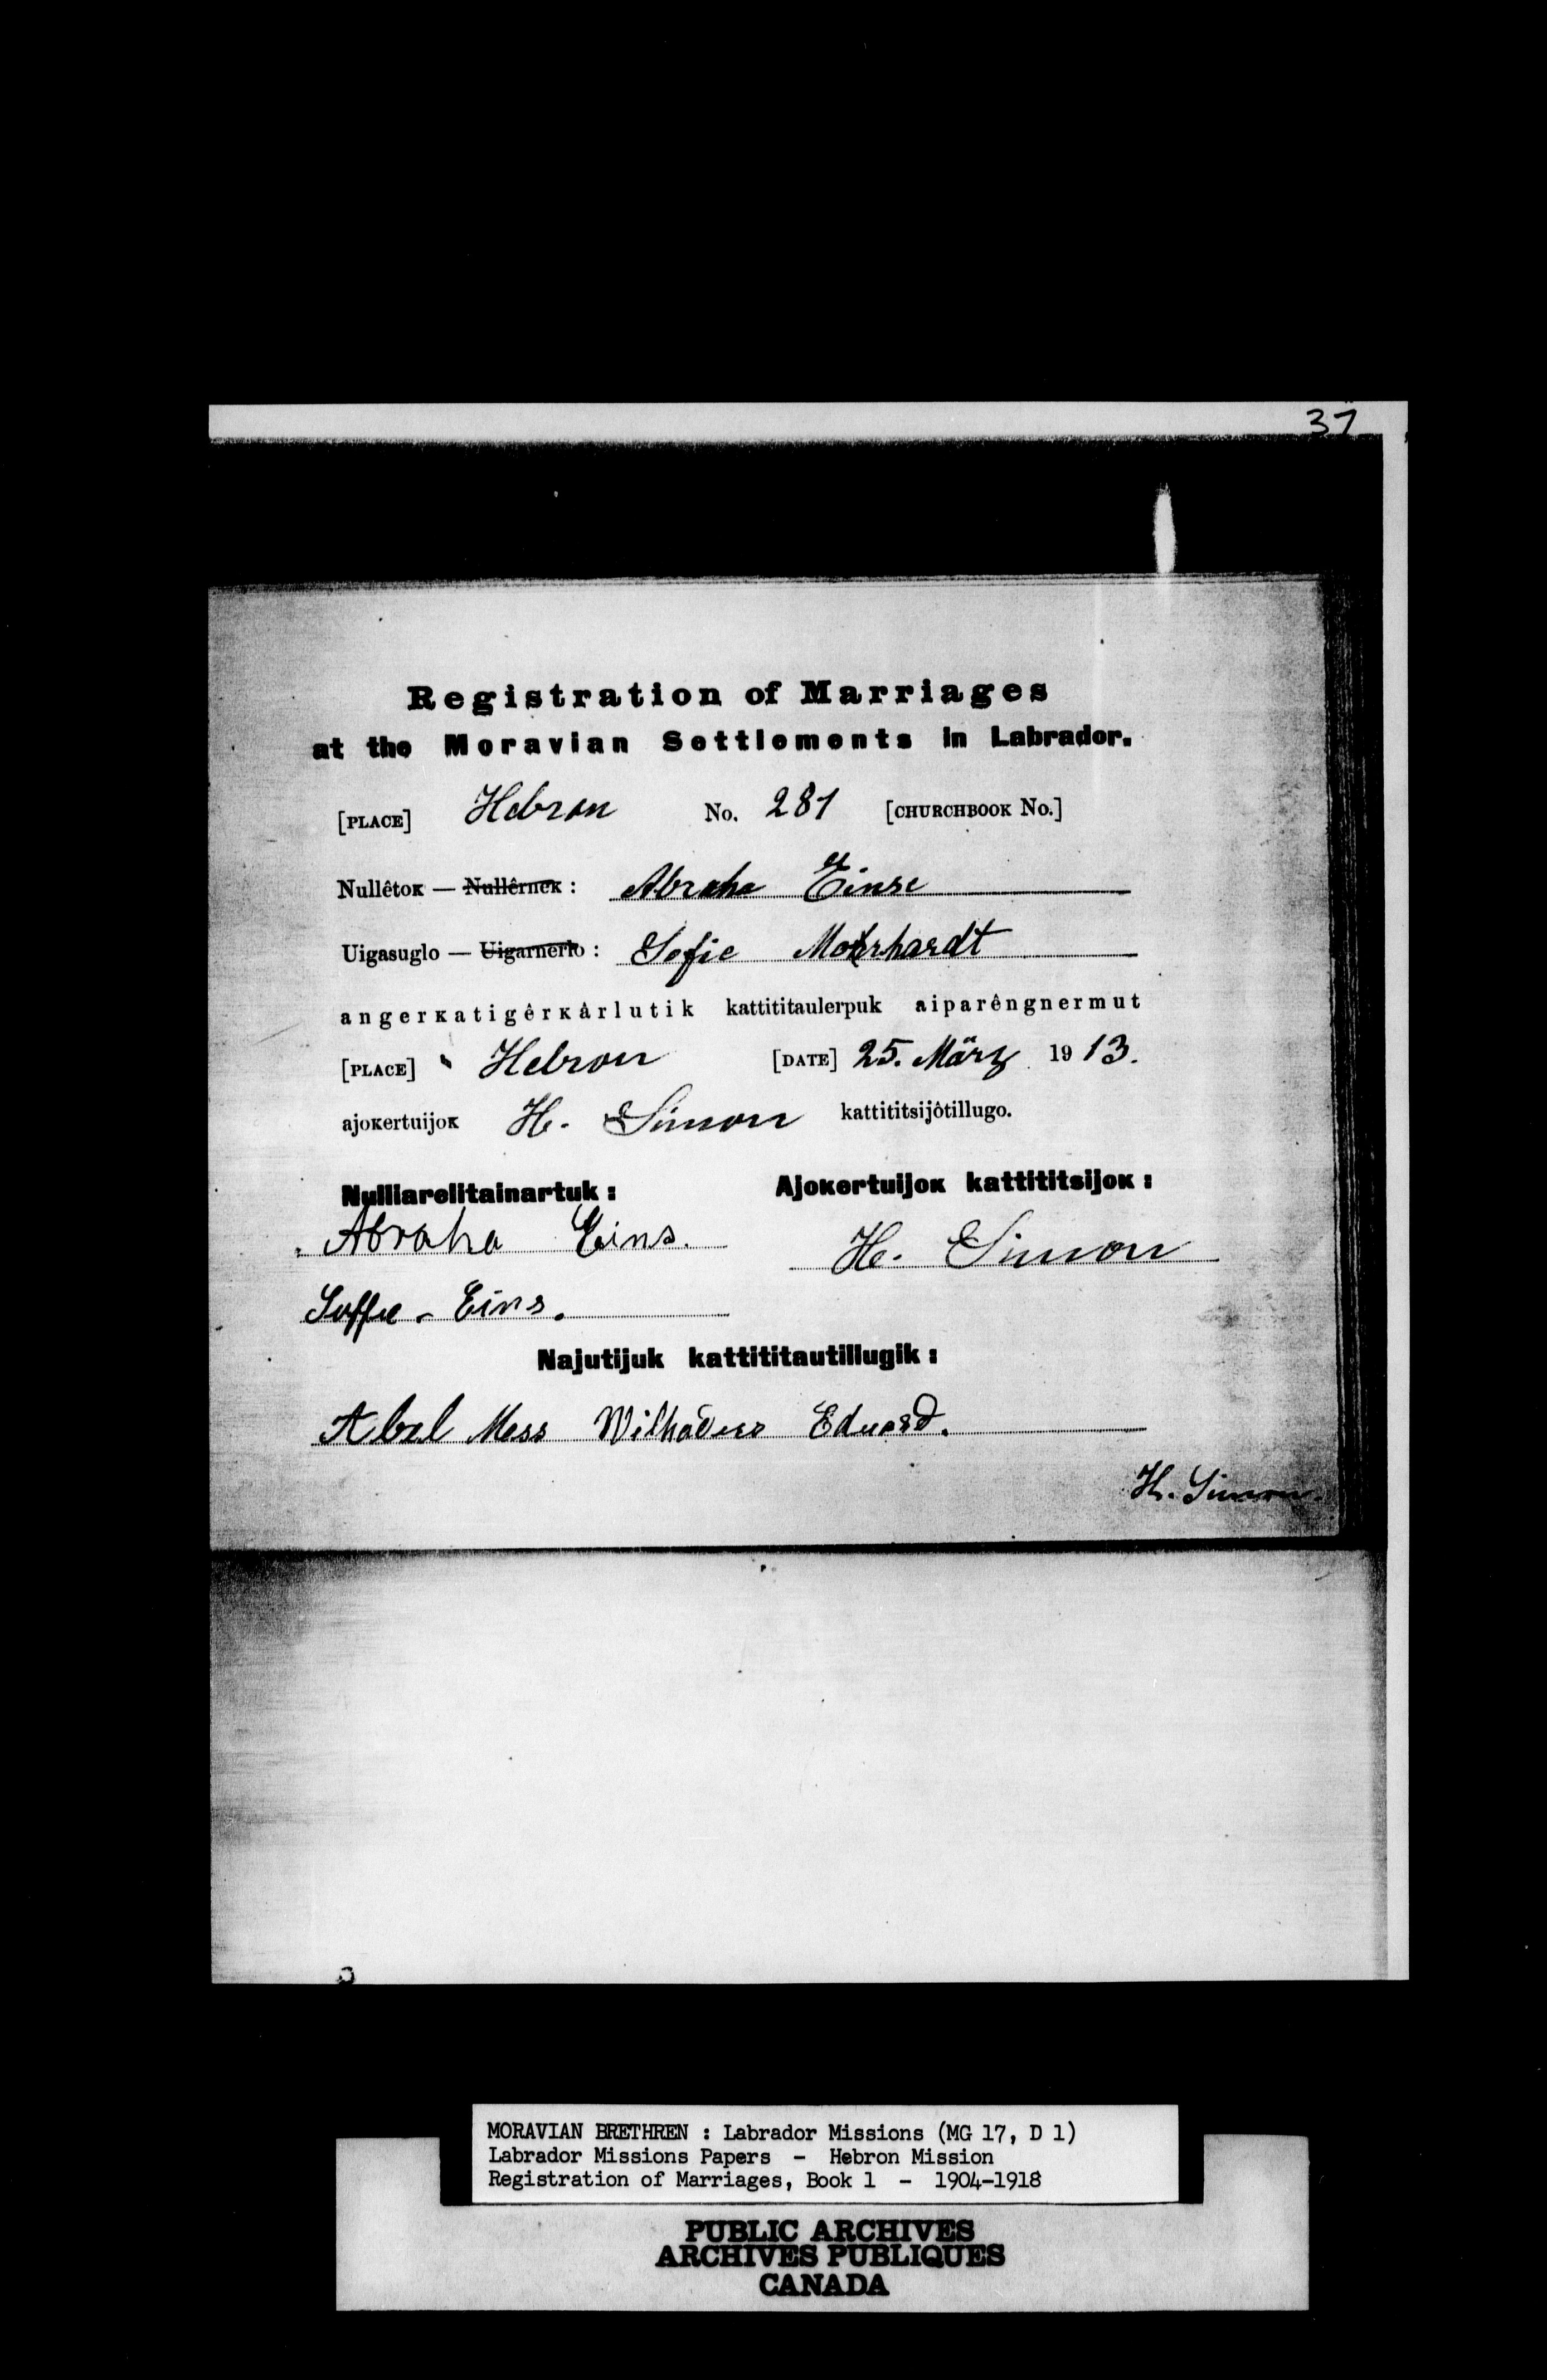 37
Registration of Marriages
at the Moravian Settlements in Labrador.
[PLACE] Hebron No. 281 [CHURCHBOOK No.]
Nullêtoĸ — Nullêrneĸ : Abraha Einse
Uigasuglo — Uigarnerlo : Sofie Morhardt
angerĸatigêrĸârlutik kattititaulerpuk aiparêngnermut
[PLACE] Hebron [DATE] 25. März 1913.
ajoĸertuijoĸ H. Simon kattititsijôtillugo.
Nulliarelitainartuk : Ajoĸertuijoĸ kattititsijoĸ :
Abraha Eins. H. Simon
Soffie - Eins.
Najutijuk kattititautillugik :
Abel Mess Eduard.
H. Simon.
MORAVIAN BRETHREN : Labrador Missions (MG 17, D 1)
Labrador Missions Papers - Hebron Mission
Registration of Marriages, Book 1 - 1904-1918
PUBLIC ARCHIVES
ARCHIVES PUBLIQUES
CANADA